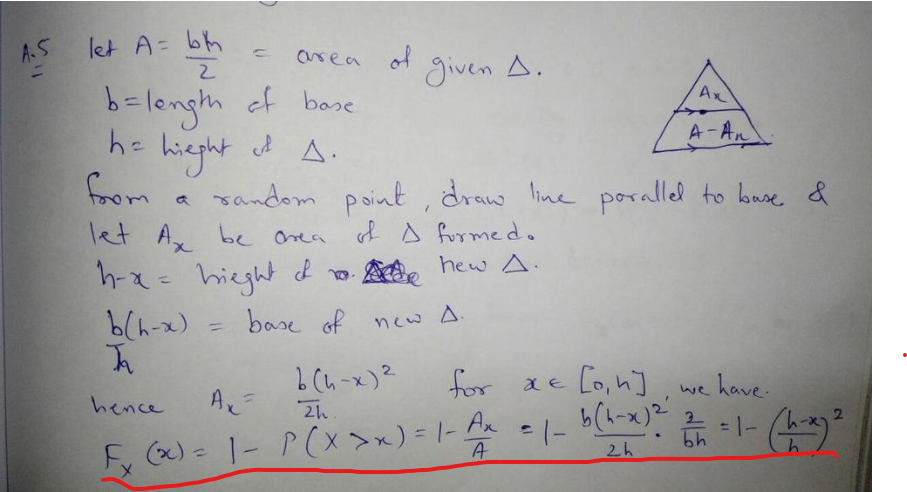 A.5 let A = bh/2 = area of given Δ.
b = length of base
h = hieght of Δ.
from a random point, draw line parallel to base &
let Ax be area of Δ formed.
h-x = hieght of new Δ.
b(h-x)/h = base of new Δ.
hence Ax = b(h-x)²/2h for x ∈ [0,h], we have.
Fx(x) = 1- P(X>x) = 1- Ax/A = 1- b(h-x)²/2h · 2/bh = 1- (h-x/h)²
Ax
A-Ax